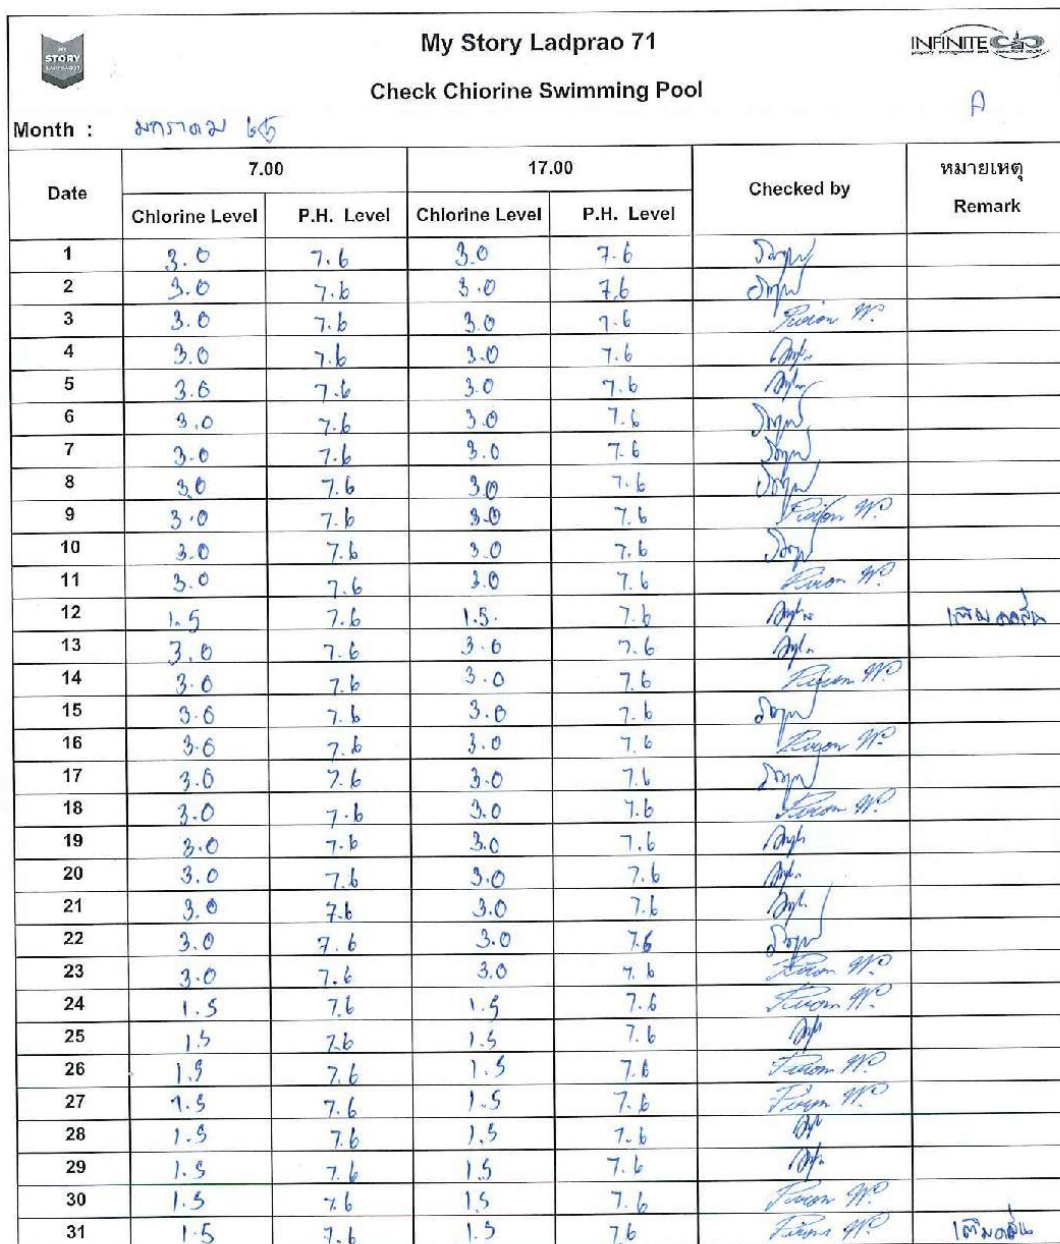 MY
STORY
LADPRAO71
My Story Ladprao 71
INFINITE
Check Chiorine Swimming Pool
A
Month : มกราคม 65
Date 7.00 17.00 Checked by หมายเหตุ
Remark
Chlorine Level P.H. Level Chlorine Level P.H. Level
1 3.0 7.6 3.0 7.6
2 3.0 7.6 3.0 7.6
3 3.0 7.6 3.0 7.6
4 3.0 7.6 3.0 7.6
5 3.0 7.6 3.0 7.6
6 3.0 7.6 3.0 7.6
7 3.0 7.6 3.0 7.6
8 3.0 7.6 3.0 7.6
9 3.0 7.6 3.0 7.6
10 3.0 7.6 3.0 7.6
11 3.0 7.6 3.0 7.6
12 1.5 7.6 1.5. 7.6 เติมคลอรีน
13 3.0 7.6 3.0 7.6
14 3.0 7.6 3.0 7.6
15 3.0 7.6 3.0 7.6
16 3.0 7.6 3.0 7.6
17 3.0 7.6 3.0 7.6
18 3.0 7.6 3.0 7.6
19 3.0 7.6 3.0 7.6
20 3.0 7.6 3.0 7.6
21 3.0 7.6 3.0 7.6
22 3.0 7.6 3.0 7.6
23 3.0 7.6 3.0 7.6
24 1.5 7.6 1.5 7.6
25 1.5 7.6 1.5 7.6
26 1.5 7.6 1.5 7.6
27 1.5 7.6 1.5 7.6
28 1.5 7.6 1.5 7.6
29 1.5 7.6 1.5 7.6
30 1.5 7.6 1.5 7.6
31 1.5 7.6 1.5 7.6